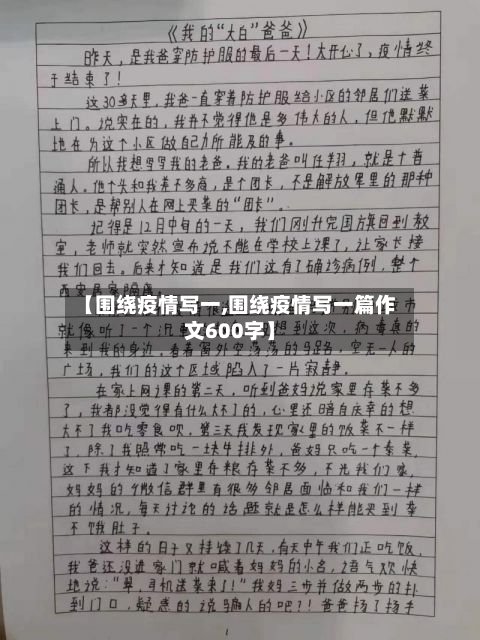 《我的“大白”爸爸》
昨天，是我爸穿防护服的最后一天！太开心了，疫情终
于结束了！
这30多天里，我爸一直穿着防护服给小区的邻居们送菜
上门。说实在的，我并不觉得他是多伟大的人，但他默默
地在为这个小区做自己力所能及的事。
所以我想写写我的老爸。我的老爸叫任翔，就是个普
通人。他个头和我差不多高，是个团长，不是解放军里的那种
团长，是帮别人在网上买菜的“团长”。
记得是12月中旬的一天，我们刚升完国旗回到教
室，老师就突然宣布说不能在学校上课了，让家长接
我们回去。后来才知道是我们这有了确诊病例，整个
西安居家隔离。
【围绕疫情写一,围绕疫情写一篇作
文600字】
就像听了一个
想到这次，病毒真的
来到我的身边，看着窗外空荡荡的马路，空无一人的
广场，我们的这个区域陷入了一片寂静。
在家上网课的第二天，听到爸妈说家里存菜不多
了，我都没觉得有什么大不了的，心里还暗自庆幸的想
大不了我吃零食呗。第三天我发现家里的饭菜不一样
了，除了我照常吃一块牛排外，爸妈只吃一个素菜，
这下我才知道了家里存粮存菜不多，不光我们家，
妈妈的个微信群里有很多邻居面临和我们一样
的情况，每天讨论的话题就是怎么样能买到菜
不饿肚子。
这样的日子又持续了几天，有天中午我们正吃饭，
我爸还没进家门就喊着妈妈的小名，语气欢快
地说：“翠，司机送菜来了！”我妈三步并做两步的扑
到门口，疑惑的说骗人的吧？！爸爸扬了扬手
1